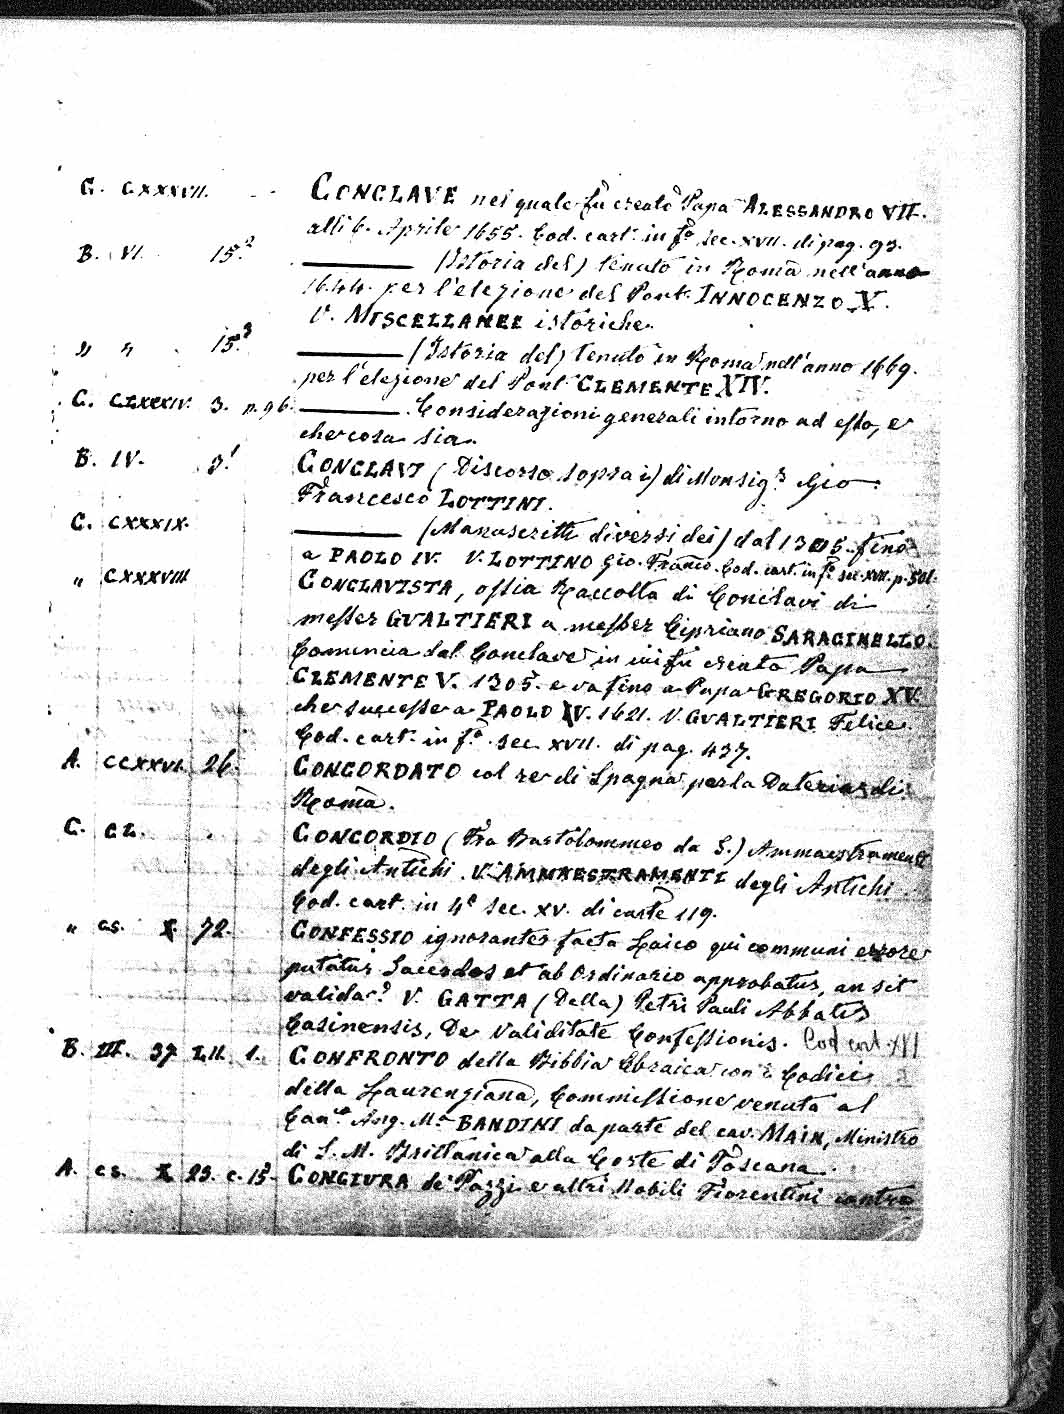 C. CXXXVII. CONCLAVE nel quale fù creato Papa ALESSANDRO VII.
alli 6. Aprile 1655. Cod. cart. in fº sec. XVII. di pag. 93.
B. VI. 15.² ——— (Istoria del) tenuto in Roma nell'anno
1644. per l'elezione del Pont. INNOCENZO X.
V. MISCELLANEE istoriche.
" " 15.³ ——— (Istoria del) tenuto in Roma nell'anno 1669.
per l'elezione del Pont. CLEMENTE XIV.
C. CLXXXIV. 3. p. 96. ——— Considerazioni generali intorno ad esso, e
che cosa sia.
B. IV. 3.¹ CONCLAVI (Discorso sopra i) di Monsig.r Gio.
Francesco LOTTINI.
C. CXXXIX. ——— (Manuscritti diversi dei) dal 1305. fino
a PAOLO IV. V. LOTTINO Gio. Franco. Cod. cart. in fº sec. XVII. p. 501.
" CXXXVIII CONCLAVISTA, ossia Raccolta di Conclavi di
messer GUALTIERI a messer Cipriano SARACINELLO.
Comincia dal Conclave in cui fu creato Papa
CLEMENTE V. 1305. e va fino a Papa GREGORIO XV.
che successe a PAOLO V. 1621. V. GUALTIERI Felice
Cod. cart. in fº. sec. XVII. di pag. 437.
A. CCXXVI. 26. CONCORDATO col re di Spagna per la Dateria di
Roma.
C. CL. CONCORDIO (Fra Bartolommeo da S.) Ammaestramenti
degli Antichi. V. AMMAESTRAMENTI degli Antichi
Cod. cart. in 4º sec. XV. di carte 119.
" cs. X. 72. CONFESSIO ignorantes facta Laico qui communi errore
putatur Sacerdos et ab Ordinario approbatus, an sit
valida? V. GATTA (Della) Petri Pauli Abbatis
Casinensis, De Validitate Confessionis. Cod cart. XVII
B. III. 37. LII. 1. CONFRONTO della Bibbia Ebraica con i Codici
della Laurenziana, Commissione venuta al
Can.co Ang. M.a BANDINI da parte del cav. MAIN, Ministro
di S. M. Brittanica alla Corte di Toscana.
A. cs. X 23. c. 15. CONGIURA de' Pazzi e altri Nobili Fiorentini contro